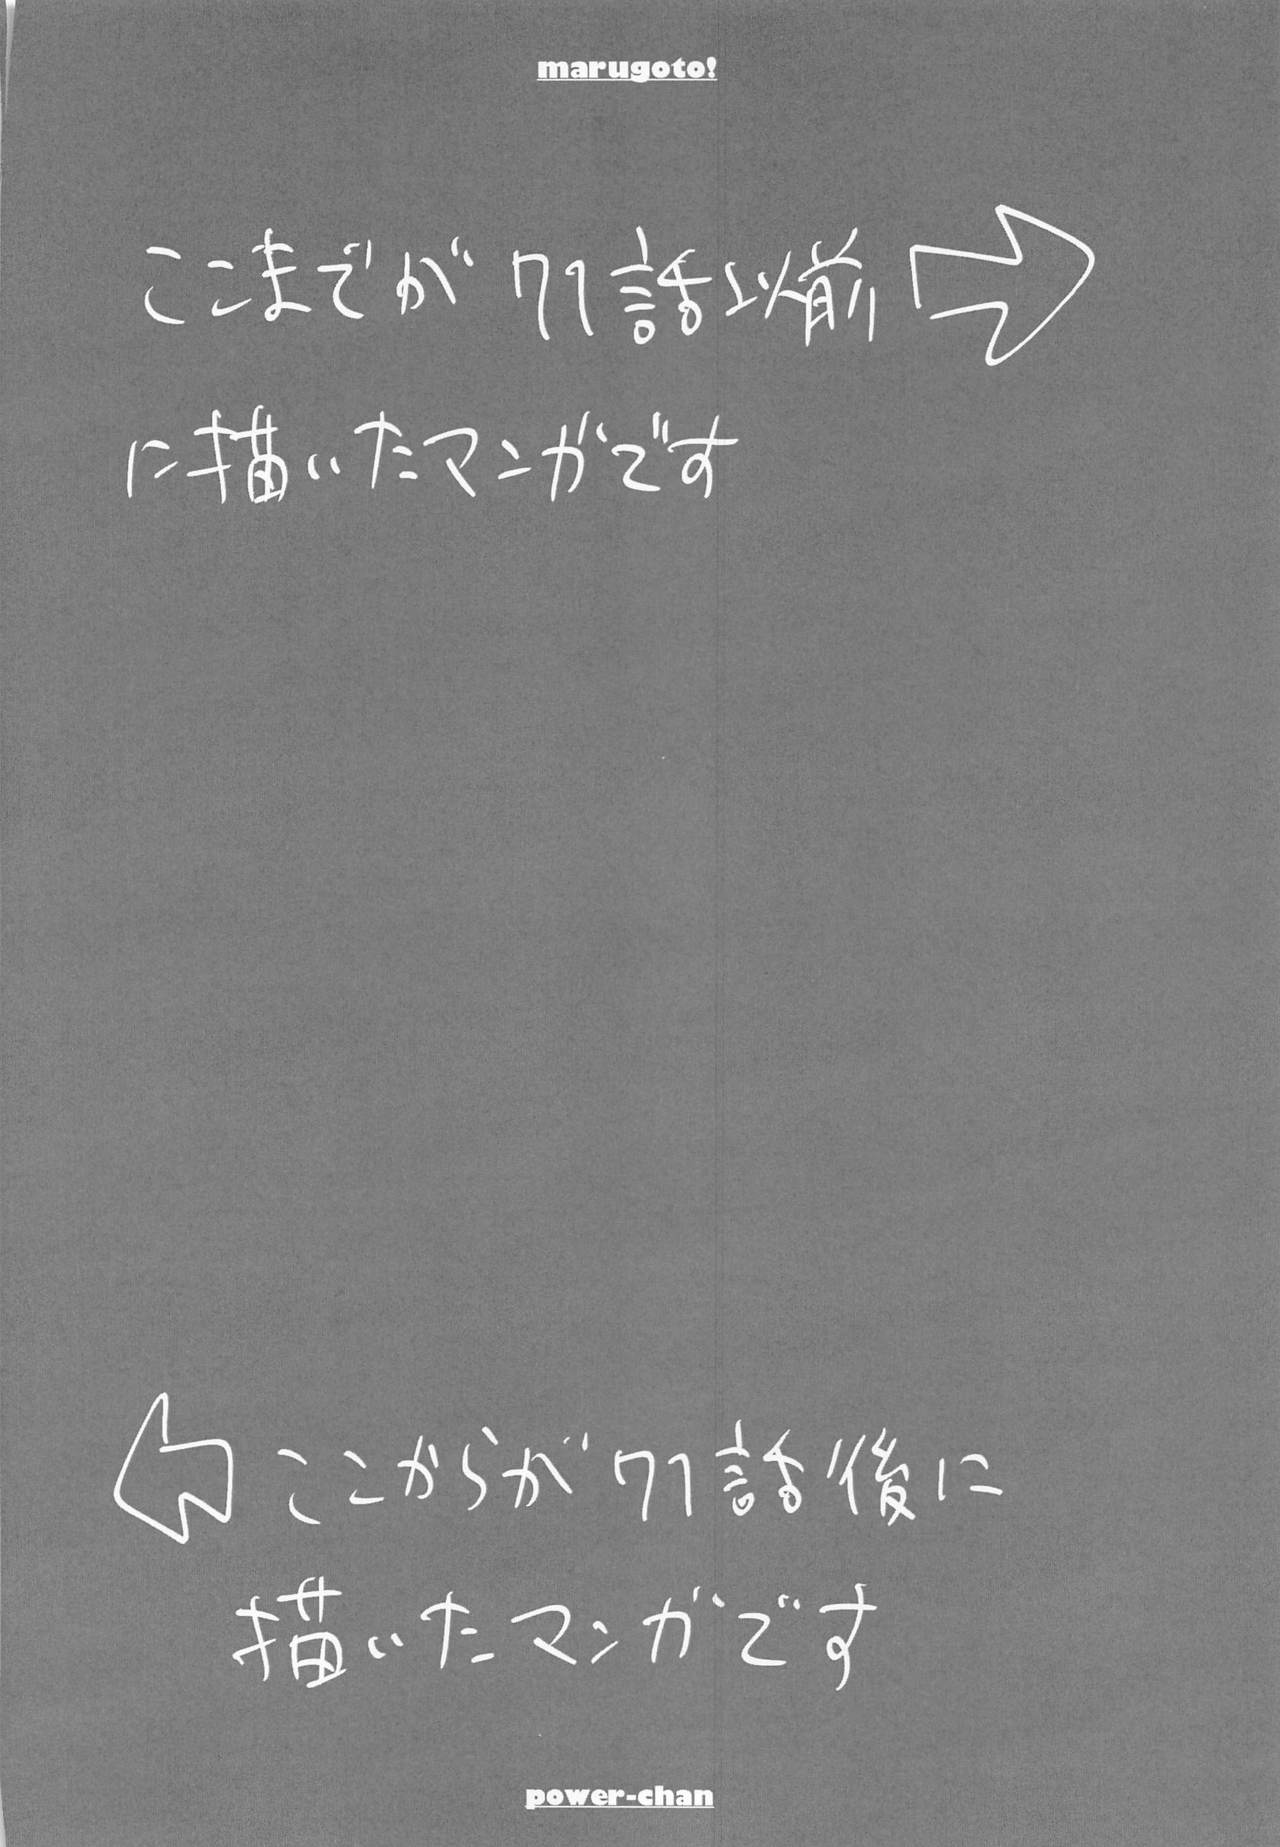 marugoto!
ここまでが71話以前
に描いたマンガです
ここからが71話後に
描いたマンガです
power-chan